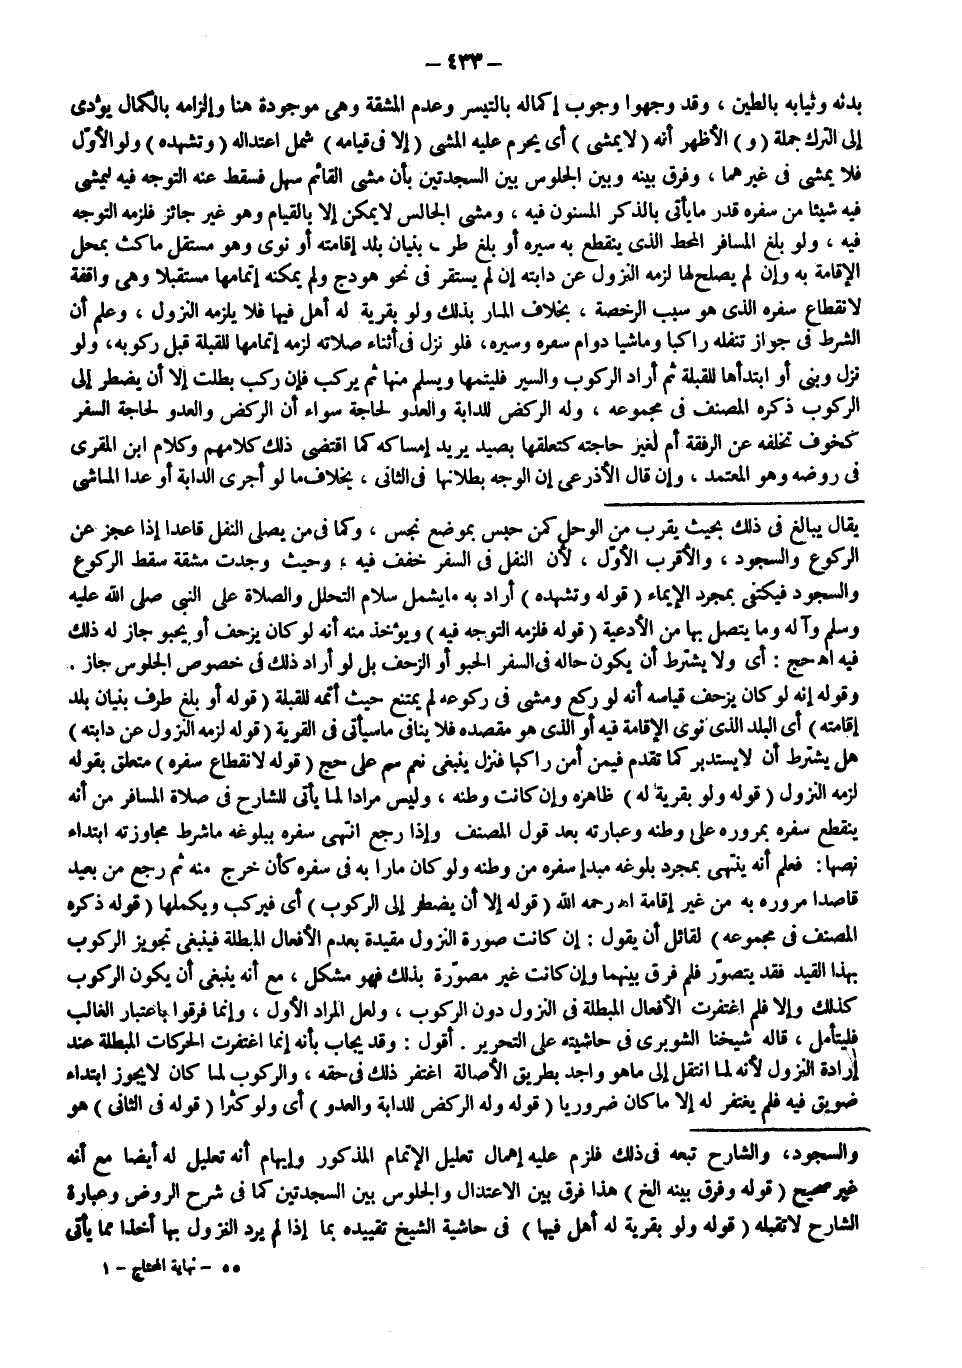 – ٤٣٣ –
بدنه وثيابه بالطين ، وقد وجهوا وجوب إكماله بالتيسر وعدم المشقة وهى موجودة هنا وإلزامه بالكمال يؤدى
إلى الترك جملة (و) الأظهر أنه (لايمشى) أى يحرم عليه المشى (إلا فى قيامه) شمل اعتداله (وتشهده) ولو الأوّل
فلا يمشى فى غيرهما ، وفرق بينه وبين الجلوس بين السجدتين بأن مشى القائم سهل فسقط عنه التوجه فيه ليمشى
فيه شيئا من سفره قدر مايأتى بالذكر المسنون فيه ، ومشى الجالس لايمكن إلا بالقيام وهو غير جائز فلزمه التوجه
فيه ، ولو بلغ المسافر المحط الذى ينقطع به سيره أو بلغ طر ـ بنيان بلد إقامته أو نوى وهو مستقل ماكث بمحل
الإقامة به وإن لم يصلح لها لزمه النزول عن دابته إن لم يستقر فى نحو هودج ولم يمكنه إتمامها مستقبلا وهى واقفة
لانقطاع سفره الذى هو سبب الرخصة ، بخلاف المار بذلك ولو بقرية له أهل فيها فلا يلزمه النزول ، وعلم أن
الشرط فى جواز تنفله راكبا وماشيا دوام سفره وسيره، فلو نزل فى أثناء صلاته لزمه إتمامها للقبلة قبل ركوبه، ولو
نزل وبنى أو ابتدأها للقبلة ثم أراد الركوب والسير فليتمها ويسلم منها ثم يركب فإن ركب بطلت إلا أن يضطر إلى
الركوب ذكره المصنف فى مجموعه ، وله الركض للدابة والعدو لحاجة سواء أن الركض والعدو لحاجة السفر
كخوف تخلفه عن الرفقة أم لغير حاجته كتعلقها بصيد يريد إمساكه كما اقتضى ذلك كلامهم وكلام ابن المقرى
فى روضه وهو المعتمد ، وإن قال الأذرعى إن الوجه بطلانها فى الثانى ، بخلاف ما لو أجرى الدابة أو عدا الماشى
يقال يبالغ فى ذلك بحيث يقرب من الوحل كمن حبس بموضع نجس ، وكما فى من يصلى النفل قاعدا إذا عجز عن
الركوع والسجود ، والأقرب الأوّل ، لأن النفل فى السفر خفف فيه ، وحيث وجدت مشقة سقط الركوع
والسجود فيكتفى بمجرد الإيماء (قوله وتشهده) أراد به مايشمل سلام التحلل والصلاة على النبى صلى الله عليه
وسلم وآله وما يتصل بها من الأدعية (قوله فلزمه التوجه فيه) ويؤخذ منه أنه لو كان يزحف أو يحبو جاز له ذلك
فيه اه حج : أى ولا يشترط أن يكون حاله فى السفر الحبو أو الزحف بل لو أراد ذلك فى خصوص الجلوس جاز .
وقوله إنه لو كان يزحف قياسه أنه لو ركع ومشى فى ركوعه لم يمتنع حيث أتمه للقبلة (قوله أو بلغ طرف بنيان بلد
إقامته) أى البلد الذى نوى الإقامة فيه أو الذى هو مقصده فلا ينافى ماسيأتى فى القرية (قوله لزمه النزول عن دابته)
هل يشترط أن لايستدبر كما تقدم فيمن أمن راكبا فنزل ينبغى نعم سم على حج (قوله لانقطاع سفره) متعلق بقوله
لزمه النزول (قوله ولو بقرية له) ظاهره وإن كانت وطنه ، وليس مرادا لما يأتى للشارح فى صلاة المسافر من أنه
ينقطع سفره بمروره على وطنه وعبارته بعد قول المصنف وإذا رجع انتهى سفره ببلوغه ماشرط مجاوزته ابتداء
نصها : فعلم أنه ينتهى بمجرد بلوغه مبدإ سفره من وطنه ولو كان مارا به فى سفره كأن خرج منه ثم رجع من بعيد
قاصدا مروره به من غير إقامة اه رحمه الله (قوله إلا أن يضطر إلى الركوب) أى فيركب ويكملها (قوله ذكره
المصنف فى مجموعه) لقائل أن يقول : إن كانت صورة النزول مقيدة بعدم الأفعال المبطلة فينبغى تجويز الركوب
بهذا القيد فقد يتصوّر فلم فرق بينهما وإن كانت غير مصوّرة بذلك فهو مشكل ، مع أنه ينبغى أن يكون الركوب
كذلك وإلا فلم اغتفرت الأفعال المبطلة فى النزول دون الركوب ، ولعل المراد الأول ، وإنما فرقوا باعتبار الغالب
فليتأمل ، قاله شيخنا الشوبرى فى حاشيته على التحرير . أقول : وقد يجاب بأنه إنما اغتفرت الحركات المبطلة عند
إرادة النزول لأنه لما انتقل إلى ماهو واجد بطريق الأصالة اغتفر ذلك فى حقه ، والركوب لما كان لايجوز ابتداء
ضويق فيه فلم يغتفر له إلا ما كان ضروريا (قوله وله الركض للدابة والعدو) أى ولو كثرا (قوله فى الثانى) هو
والسجود، والشارح تبعه فى ذلك فلزم عليه إهمال تعليل الإتمام المذكور وإيهام أنه تعليل له أيضا مع أنه
غير صحيح (قوله وفرق بينه الخ) هذا فرق بين الاعتدال والجلوس بين السجدتين كما فى شرح الروض وعبارة
الشارح لاتقبله (قوله ولو بقرية له أهل فيها) فى حاشية الشيخ تقييده بما إذا لم يرد النزول بها أخذا مما يأتى
٥٥ – نهاية المحتاج – ١